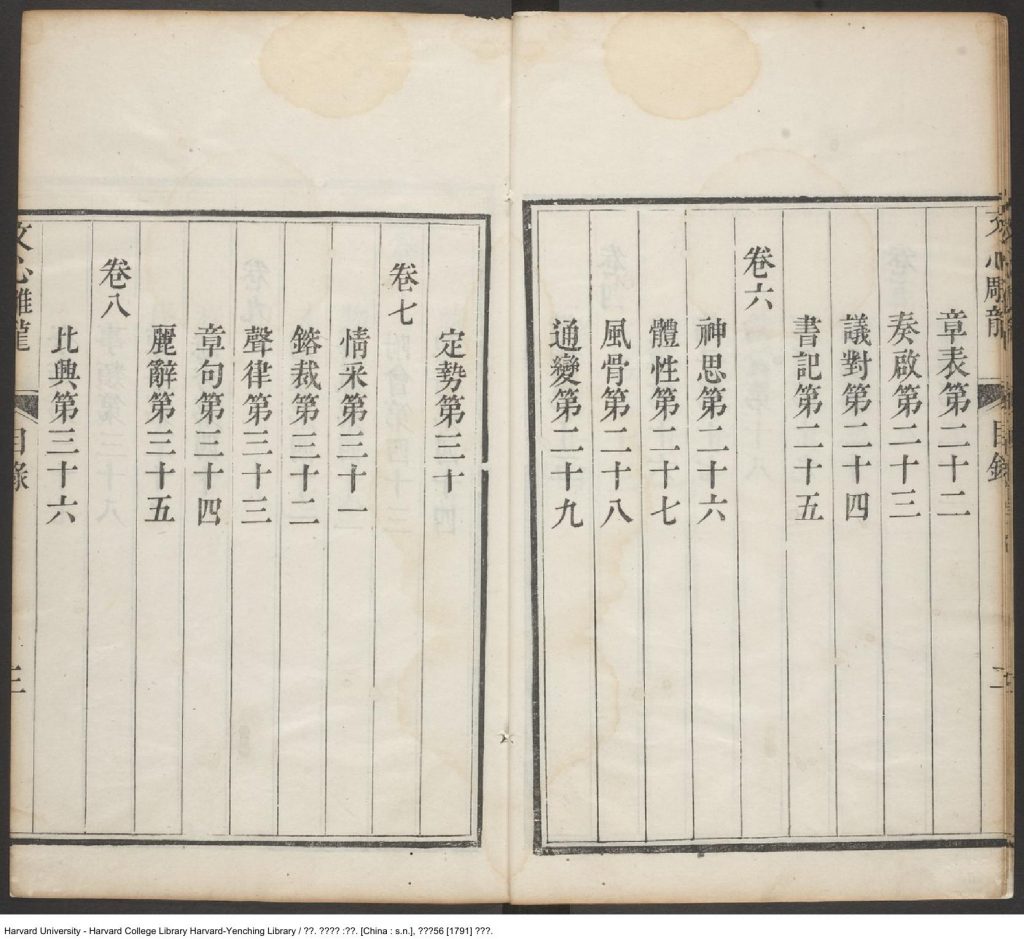 文心雕龍 目錄 二
章表第二十二
奏啟第二十三
議對第二十四
書記第二十五
卷六
神思第二十六
體性第二十七
風骨第二十八
通變第二十九
定勢第三十
卷七
情采第三十一
鎔裁第三十二
聲律第三十三
章句第三十四
麗辭第三十五
卷八
比興第三十六
文心雕龍 目錄 三
Harvard University - Harvard College Library Harvard-Yenching Library / ??. ???? :??. [China : s.n.], ???56 [1791] ???.